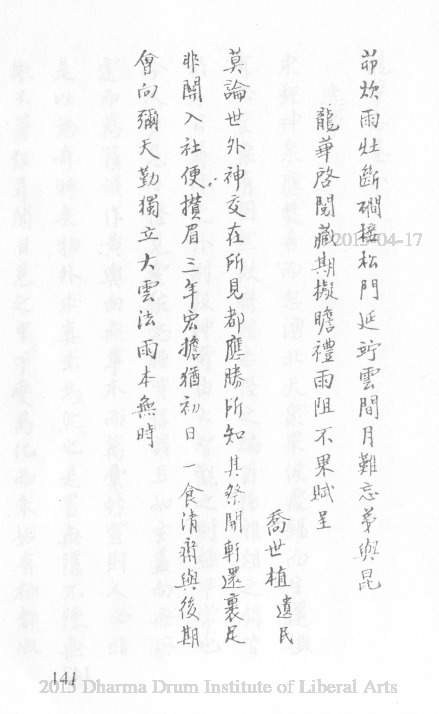 茆炊雨壯斷磵接松門延竚雲間月難忘弟與昆
龍華啓閱藏期擬瞻禮雨阻不果賦呈
喬世植遺民
莫論世外神交在所見都應勝所知其祭開軒還裹足
非關入社便攢眉三年宏擔猶初日一食清齋與後期
會向彌天勤獨立大雲法雨本無時
2013-04-17
141
2013 Dharma Drum Institute of Liberal Arts